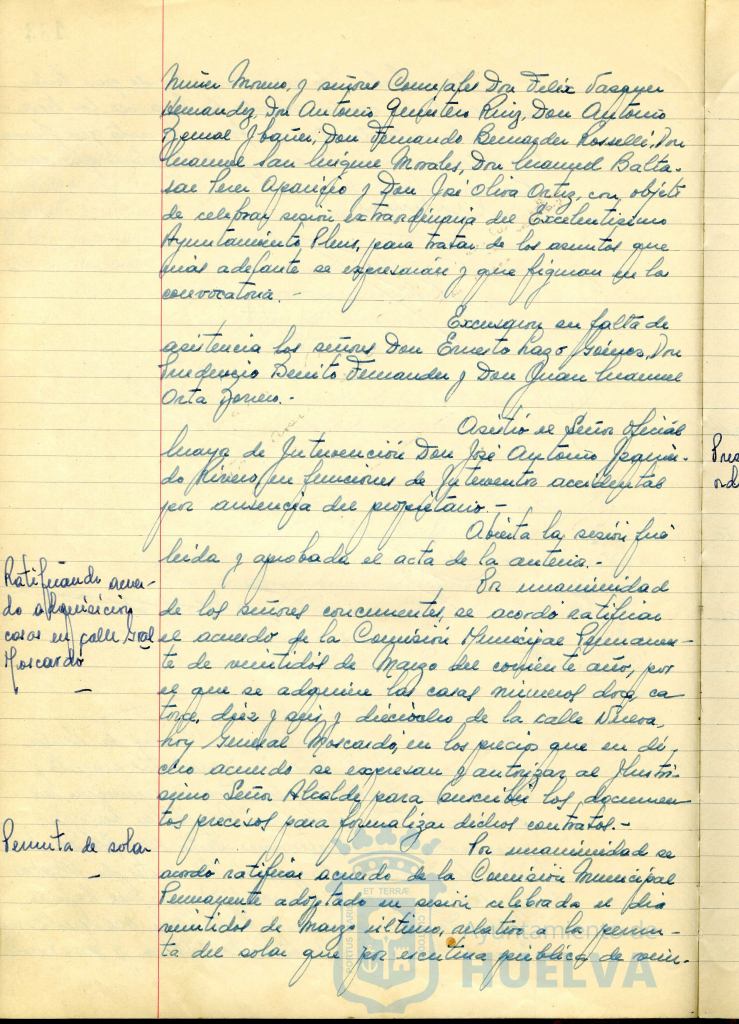 Muñoz Moreno, y señores Concejales Don Felix Vazquez
Hernandez, Don Antonio Quintero Ruiz, Don Antonio
Don Fernando Bernardez Rosselli, Don
Manuel San Miguel Morales, Don Manuel Balta-
sar Perez Aparicio y Don José Oliva Ortiz, con objeto
de celebrar sesión extraordinaria del Excelentisimo
Ayuntamiento Pleno, para tratar de los asuntos que
más adelante se expresarán y que figuran en la
convocatoria.-
Excusaron su falta de
asistencia los señores Don Ernesto Lazo Gómez, Don
Benito Fernandez y Don Juan Manuel
Orta
Asistió el Señor Oficial
de Intervención Don José Antonio
Rivero, en funciones de Interventor accidental
por ausencia del propietario.-
Abierta la sesión fué
leida y aprobada el acta de la anterior.-
Ratificando acuer-
do adquisición
casas en calle Gral
Moscardó
Por unanimidad
de los señores concurrentes, se acordó ratificar
el acuerdo de la Comisión Municipal Permanen-
te de veintidós de Marzo del corriente año, por
el que se adquiere las casas números doce, ca-
torce, diez y seis y dieciocho de la calle Nueva,
hoy General Moscardó, en los precios que en di-
cho acuerdo se expresan y autorizar al Ilustri-
simo Señor Alcalde para suscribir los documen-
tos precisos para formalizar dichos contratos.-
Permuta de solar
Por unanimidad se
acordó ratificar acuerdo de la Comisión Municipal
Permanente adoptado en sesión celebrada el dia
veintidós de Marzo último, relativo a la permu-
ta del solar que por escritura pública de vein-
ET TERRÆ
PORTUS MARIS
CUSTODIA
Ayuntamiento de
HUELVA